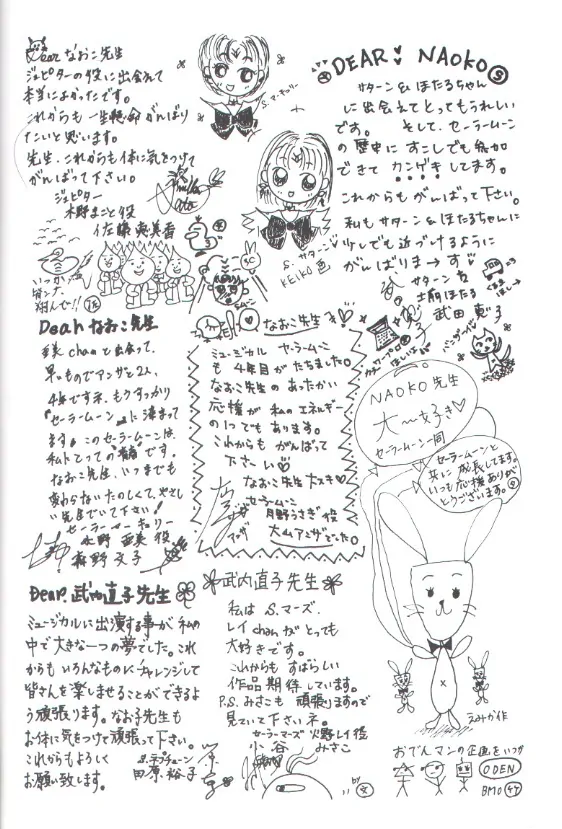 Dear なおこ先生
ジュピターの役に出会えて
本当によかったです。
これからも一生懸命がんばり
たいと思います。
先生、これからも体に気をつけて
がんばって下さい。
ジュピター
木野まこと役
佐藤恵美香
S.マーキュリー
DEAR NAOKO
サターン&ほたるちゃん
に出会えてとってもうれしい
です。 そして、セーラームーン
の歴史に すこしでも参加
できて カンゲキしてます。
これからもがんばって下さい。
私もサターン&ほたるちゃんに
少しでも近づけるように
がんばりまーす
サターン &
土萠ほたる
武田恵子
S.サターン
KEIKO画
Dear なおこ先生
亜美 chan と出会って、
早いものでアンザと2人、
4年です ネ。もうすっかり
『セーラームーン』に染まって
ます。このセーラームーンは
私にとっての です。
なおこ先生、いつまでも
変わらない たのしくて、やさし
い先生でいて下さい!
セーラーマーキュリー
水野亜美役
森野文子
なおこ先生
ミュージカル セーラームーン
も 4年目が たちました。
なおこ先生の あったかい
応援が 私のエネルギー
の1つでも あります。
これからも がんばって
下さーい
なおこ先生 大スキ
セーラームーン
月野うさぎ 役
大山アンザでした
NAOKO先生
大〜好き
セーラームーン一同
セーラームーンと
共に成長してます。
いつも応援ありが
とうございます。
Dear. 武内直子先生
ミュージカルに出演する事が私の
中で大きな一つの夢でした。これ
からも いろんなものにチャレンジして
皆さんを楽しませることができるよ
う頑張ります。なお子先生も
お体に気をつけて頑張って下さい。
これからもよろしく
お願い致します。
S.ネプチューン
田原裕子
武内直子先生
私は S.マーズ、
レイ chan が とっても
大好きです。
これからも すばらしい
作品期待しています。
P.S. みさこも 頑張りますので
見ていて下さいネ。
セーラーマーズ 火野レイ役
小谷 みさこ
by
えみか作
おでんマンの企画をいつか
ODEN